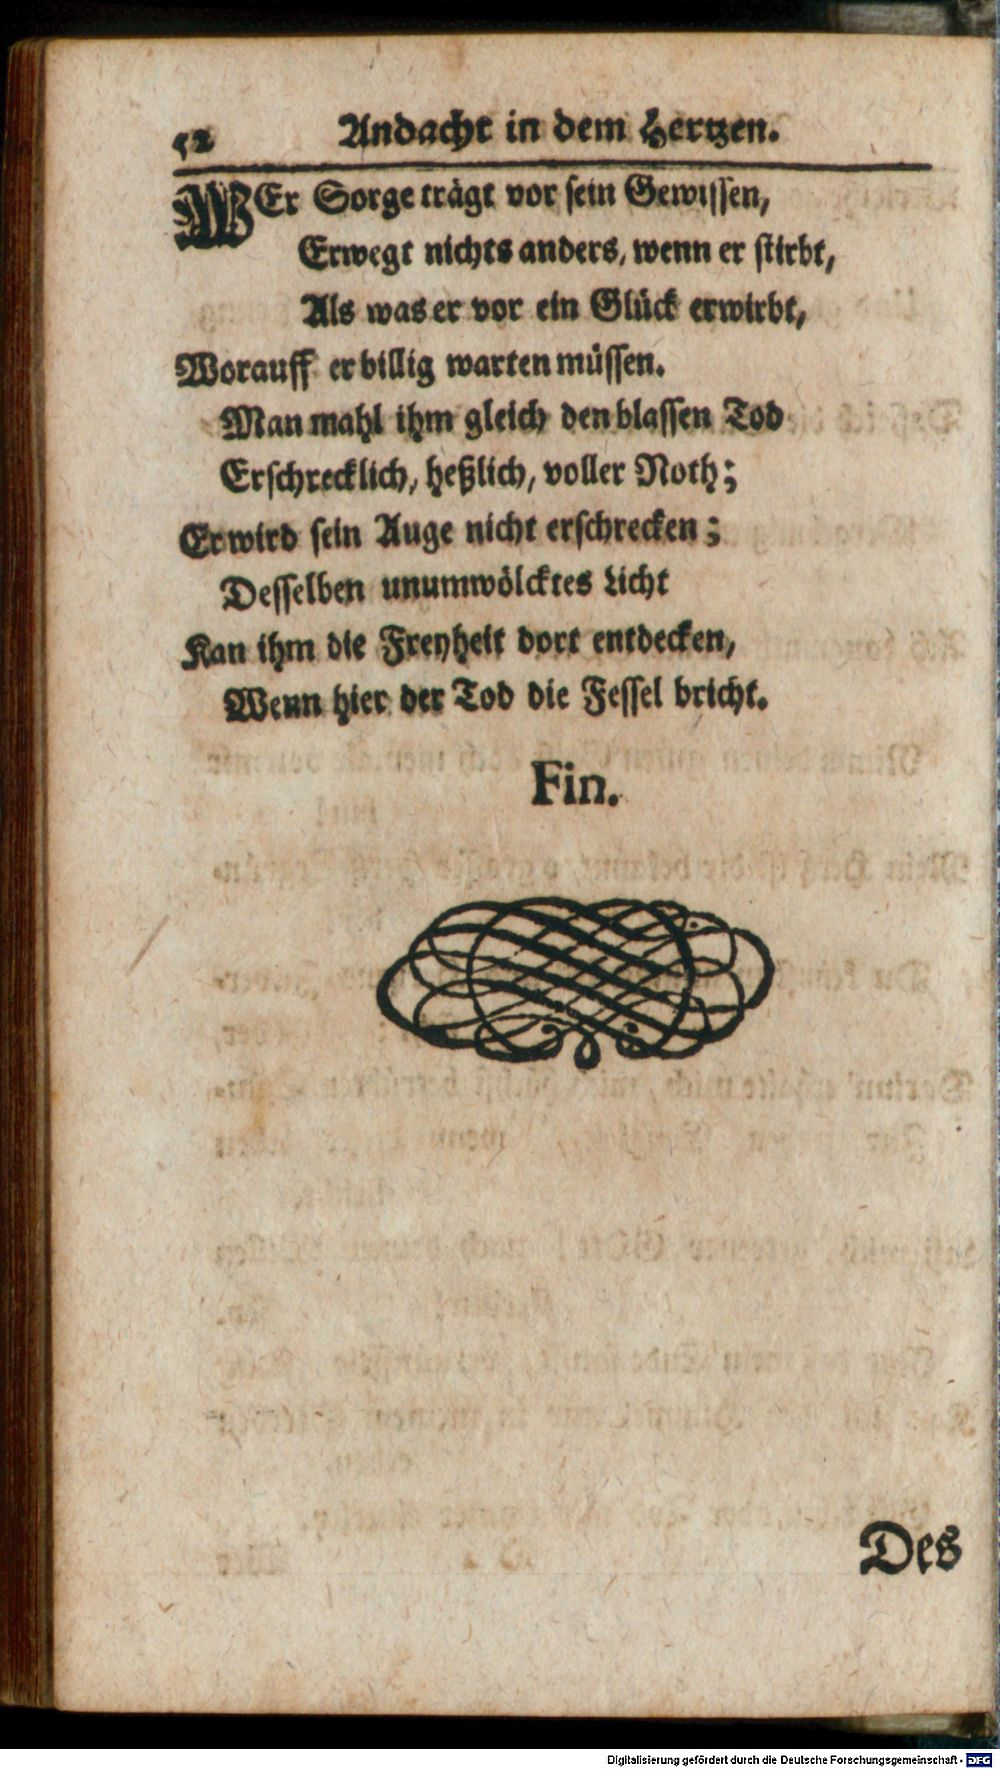 52 Andacht in dem Hertzen.
WEr Sorge trägt vor sein Gewissen,
Erwegt nichts anders, wenn er stirbt,
Als was er vor ein Glück erwirbt,
Worauff er billig warten müssen.
Man mahl ihm gleich den blassen Tod
Erschrecklich, heßlich, voller Noth;
Er wird sein Auge nicht erschrecken;
Desselben unumwölcktes Licht
Kan ihm die Freyheit dort entdecken,
Wenn hier der Tod die Fessel bricht.
Fin.
Des
Digitalisierung gefördert durch die Deutsche Forschungsgemeinschaft - DFG